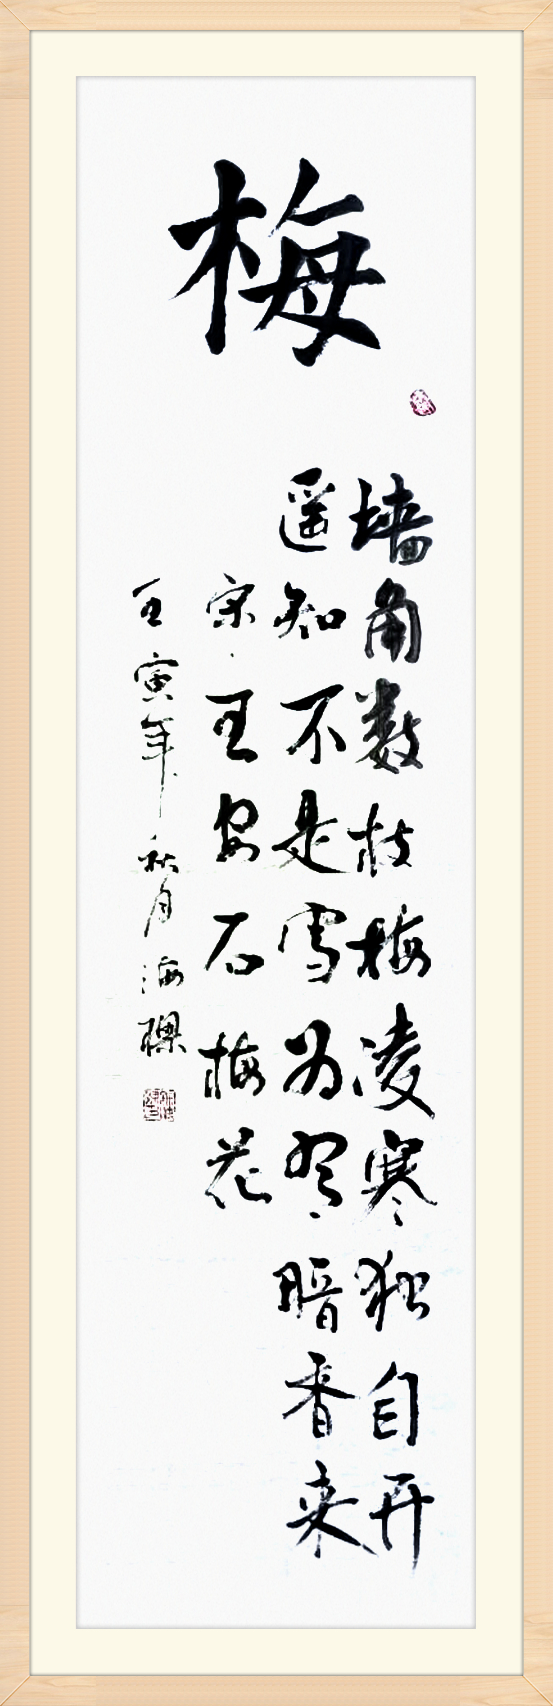 梅
墙角数枝梅凌寒独自开
遥知不是雪为有暗香来
宋·王安石梅花
壬寅年秋月海